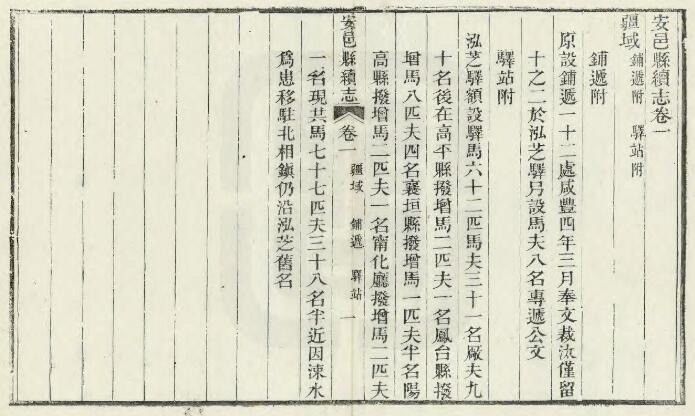 安邑縣續志卷一
疆域 鋪遞附 驛站附
鋪遞附
原設鋪遞一十二處咸豐四年三月奉文裁汝僅留
十之二於泓芝驛另設馬夫八名專遞公文
驛站附
泓芝驛額設驛馬六十二匹馬夫三十一名廠夫九
十名後在高平縣撥增馬二匹夫一名鳳台縣撥
增馬八匹夫四名襄垣縣撥增馬一匹夫半名陽
高縣撥增馬二匹夫一名甯化廳撥增馬二匹夫
安邑縣續志 卷一 疆域 鋪遞 驛站 一
一名現共馬七十七匹夫三十八名半近因涑水
為患移駐北相鎮仍沿泓芝舊名